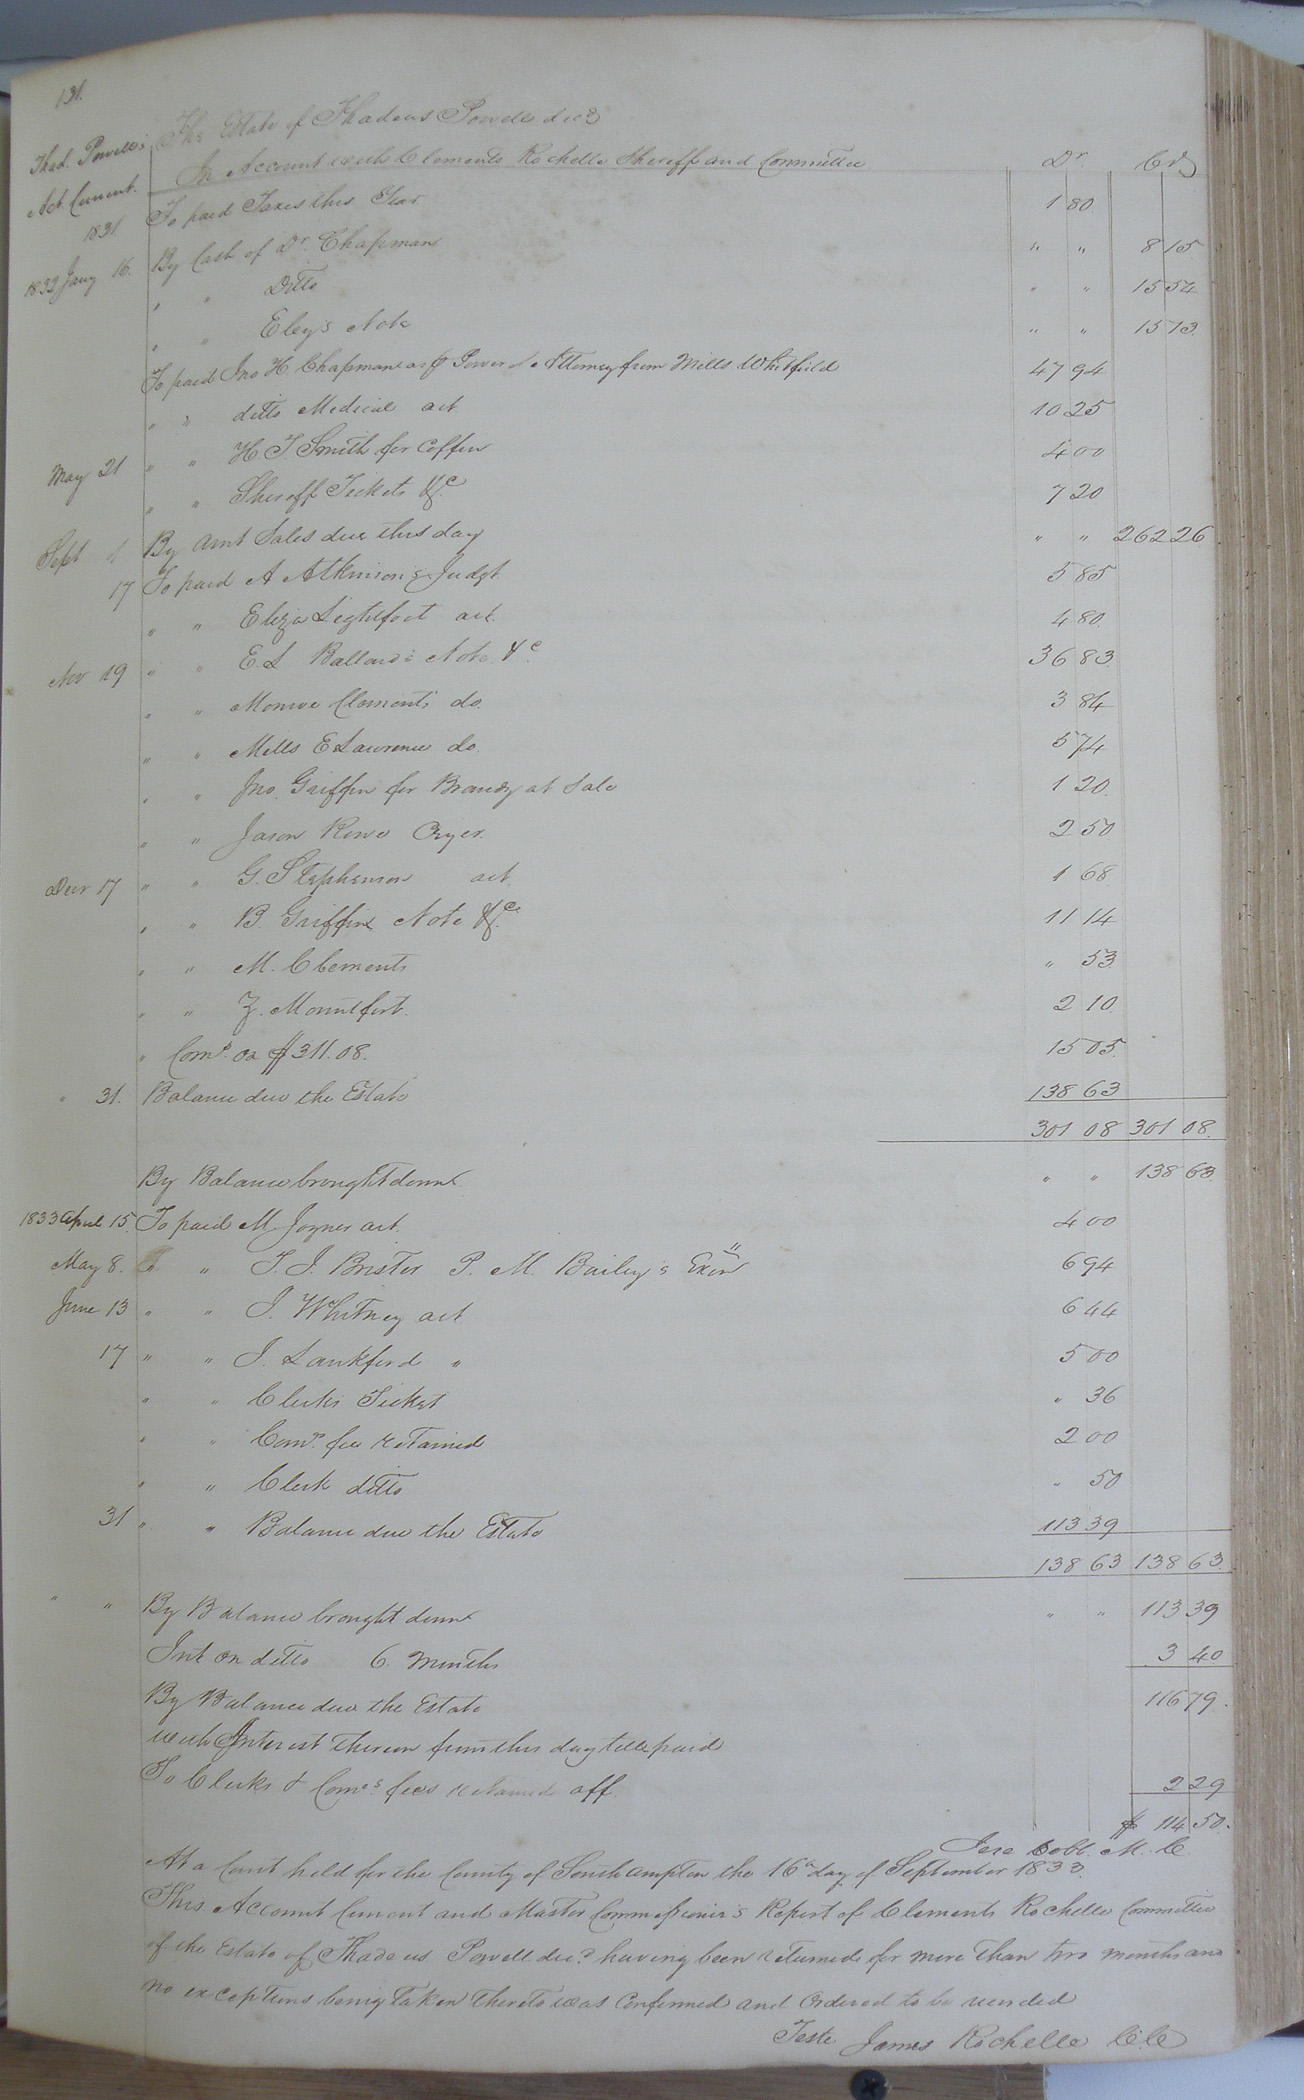 131.
Thad. Powell's The Estate of Thadeus Powell decd
Act. Current. In Account with Clements Rochelle Sheriff and Committee Dr. Crd
1831 To paid Taxes this Year 1 80
1832 Jany 16. By Cash of Dr. Chapman " " 8 15
" " Ditto " " 15 54
" " Eley's Note " " 15 13
To paid Jno H Chapman as p Power of Attorney from Mills Whitfield 47 94
" " ditto Medical act 10 25
May 21 " " H. T. Smith for Coffin 4 00
" " Sheriff Tickets &c 7 20
Sept 1 By amt Sales due this day " " 262 26
17 To paid A Atkinson's Judgt 5 85
" " Eliza Lightfoot act. 4 80
Nov 19 " " E. L Ballard's Note &c. 36 83
" " Monroe Clements do. 3 84
" " Mills E Lawrence do. 5 74
" " Jno. Griffin for Brandy at Sale 1 20
" " Jason Rowe Cryer. 2 50
Decr 17 " " G. Stephenson act. 1 68
" " B. Griffin Note &c. 11 14
" " M. Clements " 53
" " Z. Mountfort. 2 10
" Coms. on $311.08. 15 05
" 31. Balance due the Estate 138 63
301 08 301 08
By Balance brought down " " 138 63
1833 April 15. To paid M Joyner act. 4 00
May 8. " " T. J. Brister P. M. Bailey's Exon 6 94
June 13 " " J. Whitney act 6 44
17 " " J. Lankford " 5 00
" " Clerks Ticket " 36
" " Comr. fee retained 2 00
" " Clerk ditto " 50
31 " " Balance due the Estate 113 39
138 63 138 63
" " By Balance brought down " " 113 39
Int on ditto 6. Months 3 40
By Balance due the Estate 116 79.
with Interest thereon from this day till paid
To Clerks & Comrs fees retained off 2 29
$ 114 50.
Jere Cobb. M. C.
At a Court held for the County of Southampton the 16th day of September 1833.
This Account Current and Master Commissioner's Report of Clements Rochelle Committee
of the Estate of Thadeus Powell decd. having been returned for more than two months and
no exceptions being taken thereto was Confirmed and Ordered to be recorded
Teste James Rochelle C.C